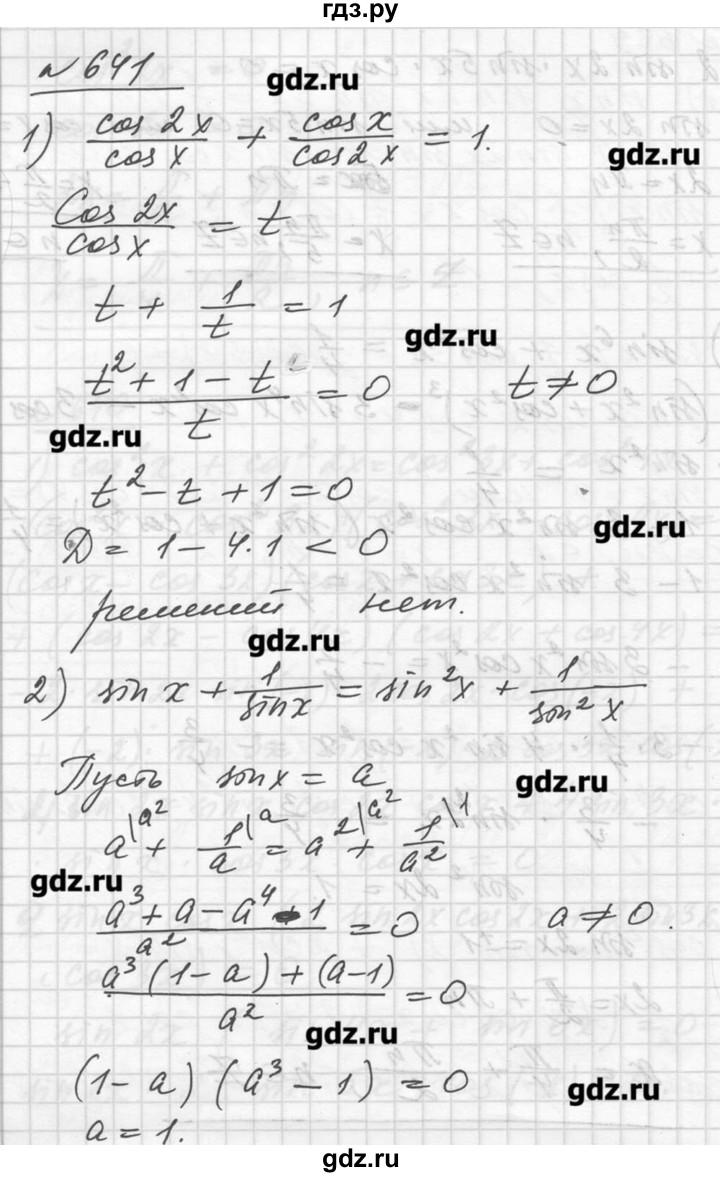 гдз.ру
№ 641
gdz.ru
1) cos 2x / cos x + cos x / cos 2x = 1.
gdz.ru
Cos 2x / cos x = t
t + 1/t = 1
gdz.ru
(t² + 1 - t) / t = 0 t ≠ 0
gdz.ru
t² - t + 1 = 0
gdz.ru
D = 1 - 4·1 < 0
решений нет.
gdz.ru
2) sin x + 1/sin x = sin² x + 1/sin² x
Пусть sin x = a
gdz.ru
a\a² + 1/a\a = a²\a² + 1/a²\1
gdz.ru
(a³ + a - a⁴ - 1) / a² = 0 a ≠ 0.
(a³(1 - a) + (a - 1)) / a² = 0
gdz.ru
(1 - a)(a³ - 1) = 0
gdz.ru
a = 1.
gdz.ru